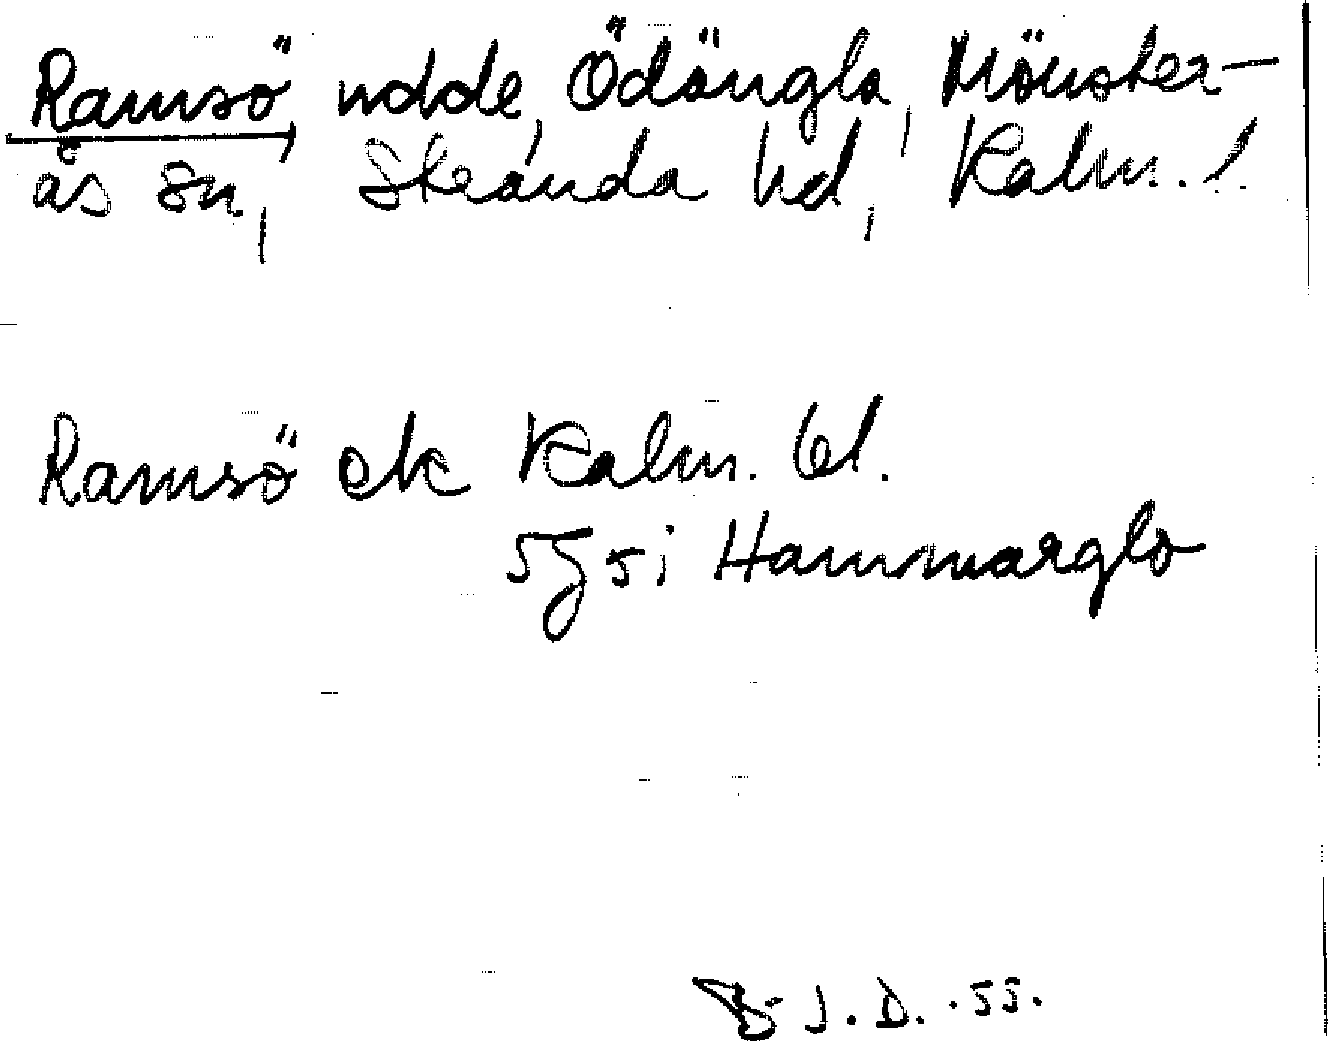 Ramsö, udde, Ödängla, Mönster-
ås sn, Stranda hd, Kalm. l.
Ramsö ek Kalm. bl.
5g5i Hammarglo
J. D. .55.